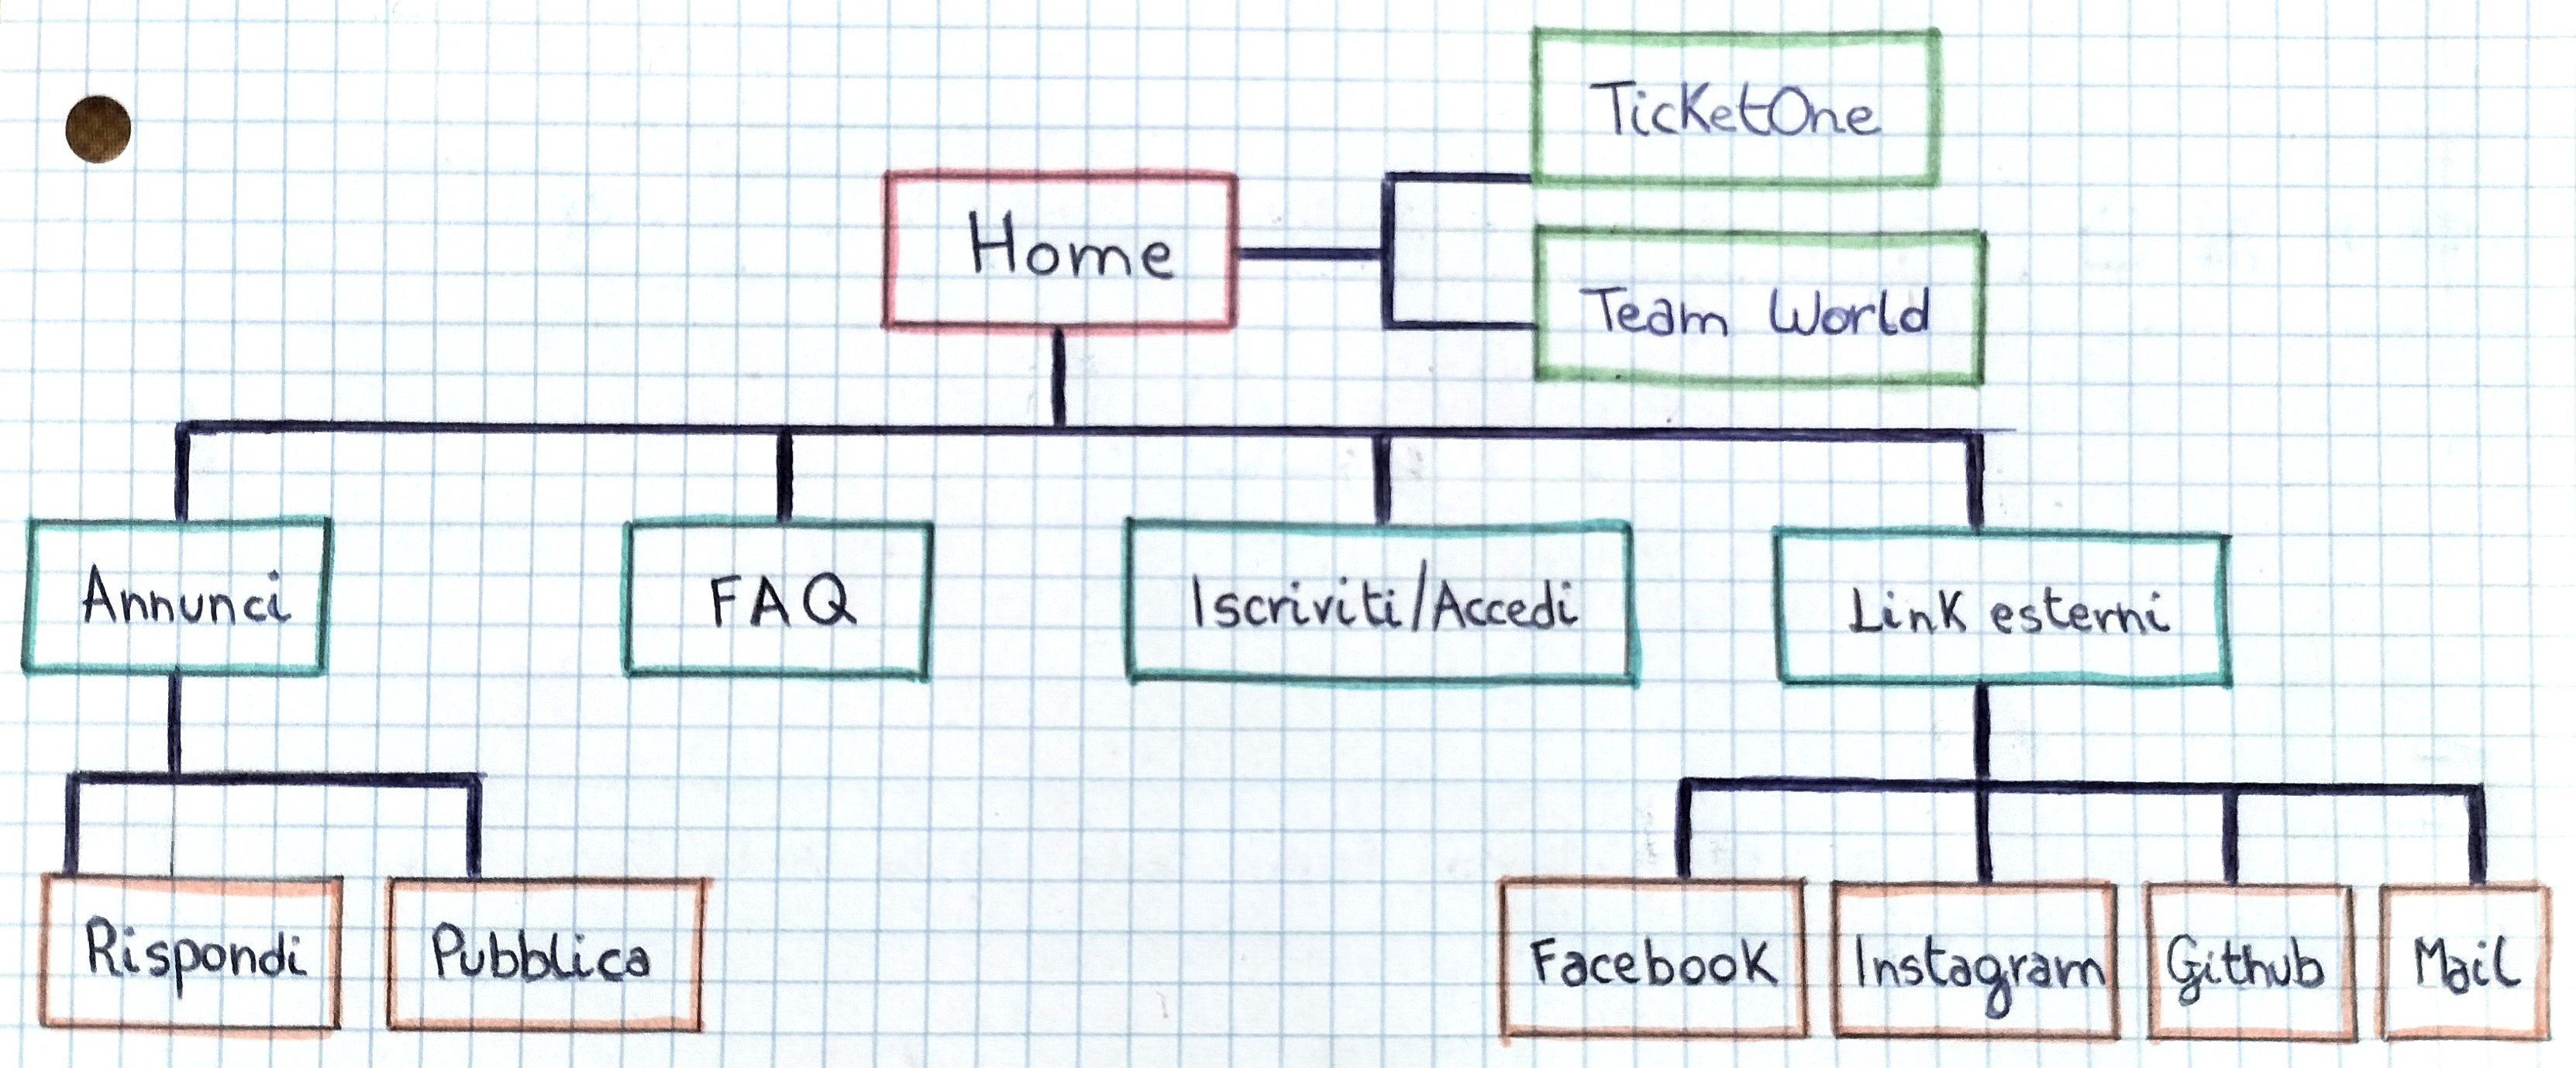 TicketOne
Home
Team World
Annunci
FAQ
Iscriviti/Accedi
Link esterni
Rispondi
Pubblica
Facebook
Instagram
Github
Mail